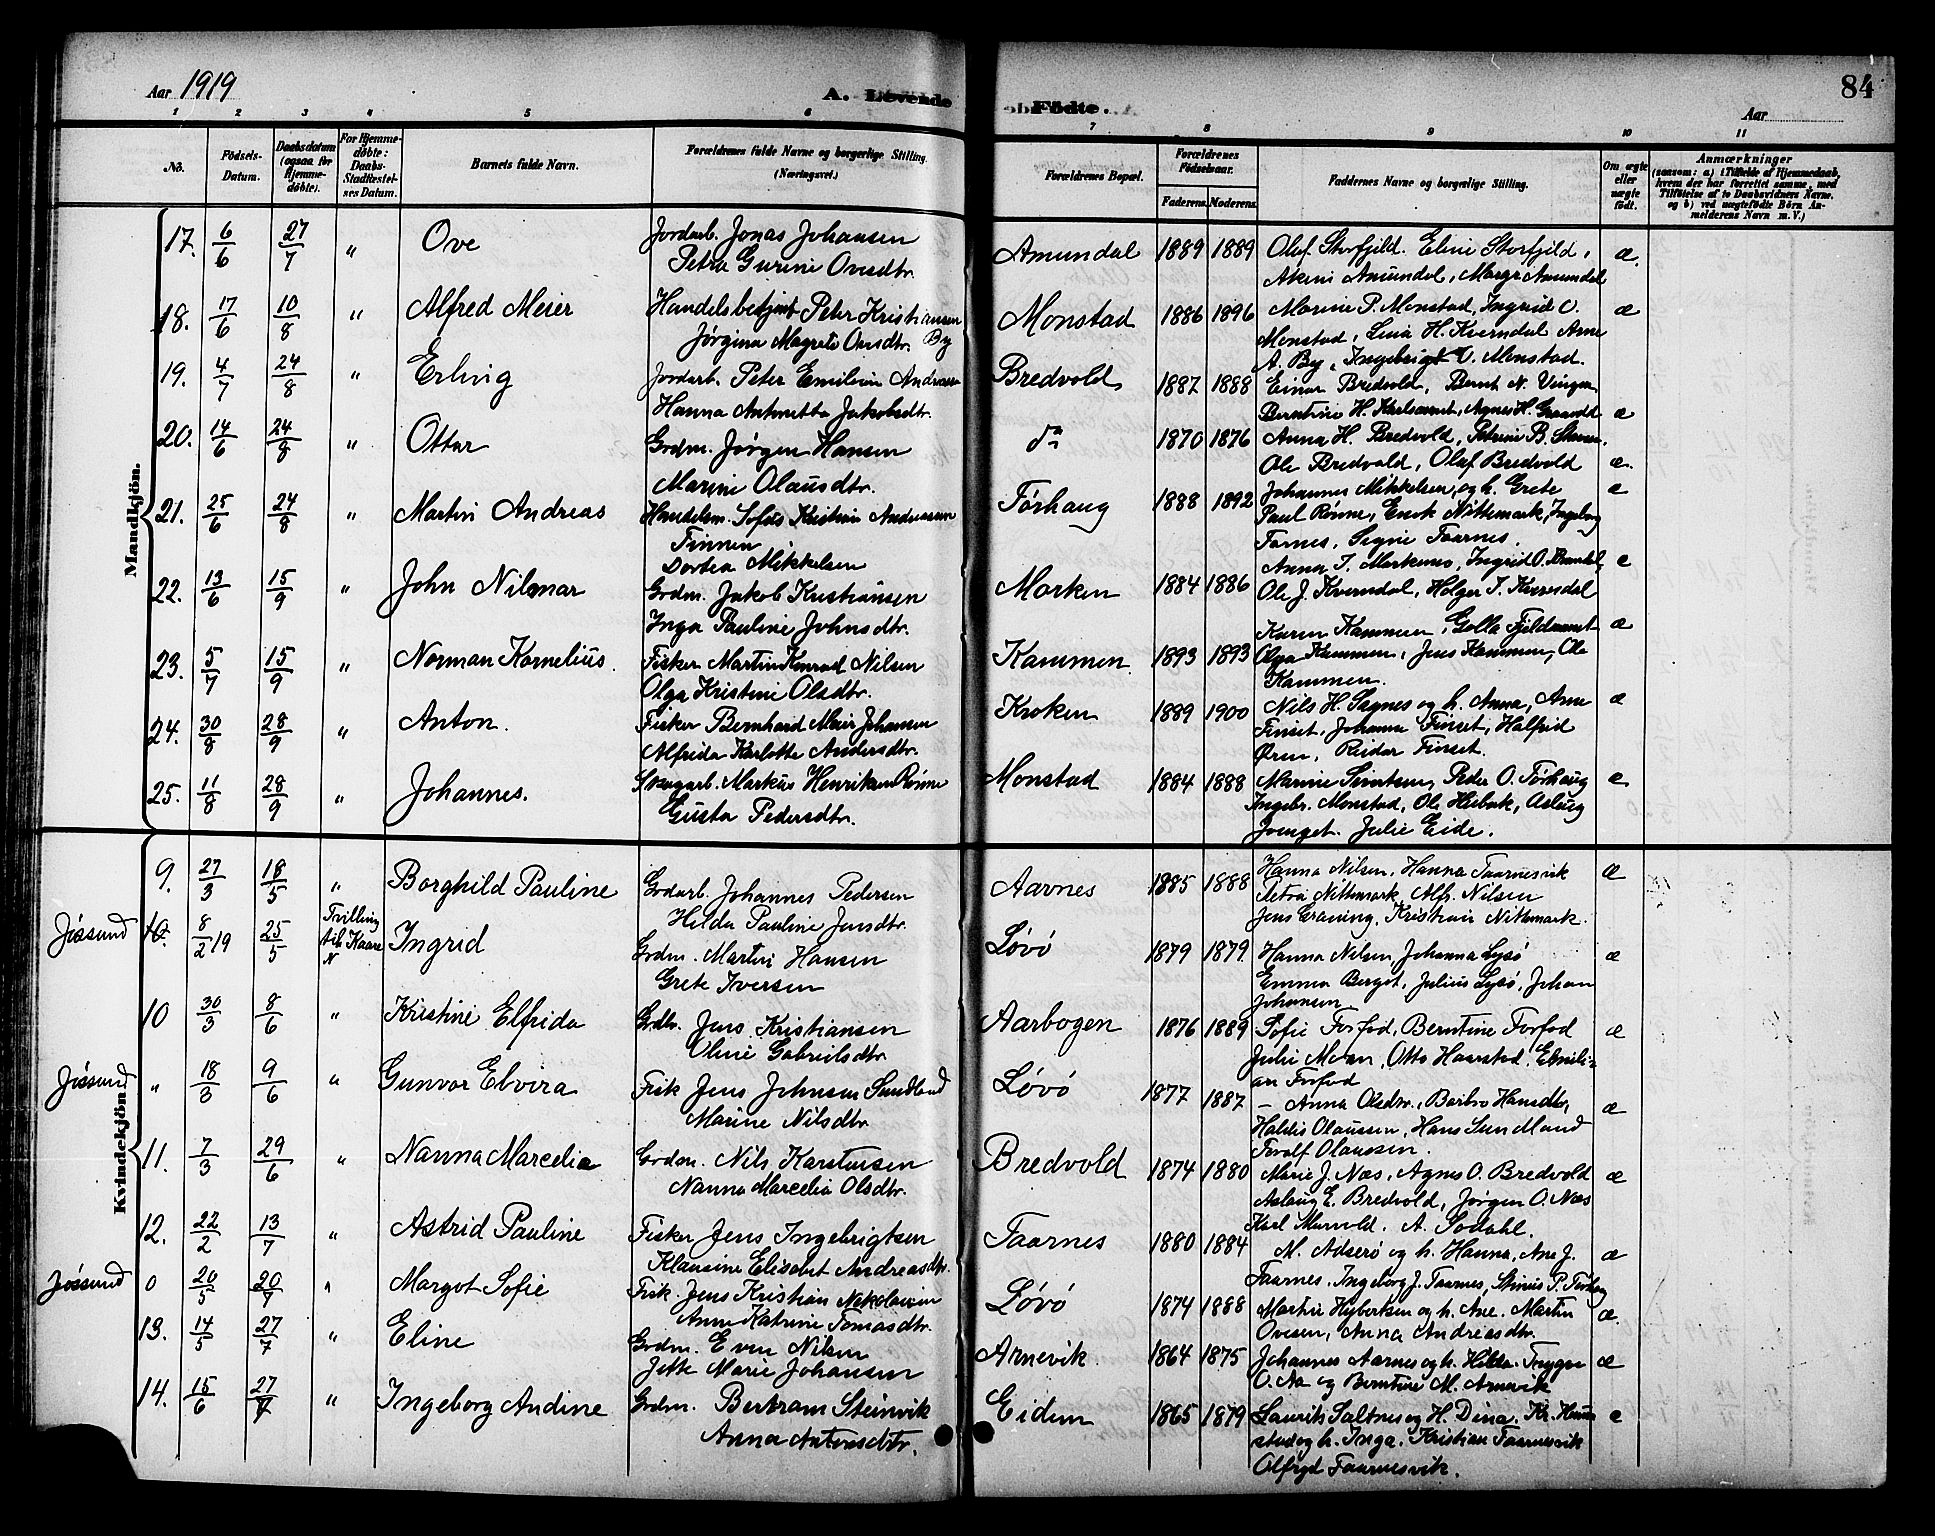 Aar 1919
A. Levende
Födte.
Aar
84
1 2 3 4 5 6 7 8 9 10 11
No.
Födsels-Datum.
Daabsdatum (ogsaa for Hjemmedöbte).
For Hjemmedöbte: Daabs-Stadfæstelses Datum.
Barnets fulde Navn.
Forældrenes fulde Navne og borgerlige Stilling. (Næringsvei.)
Forældrenes Bopæl.
Forældrenes Födselsaar.
Faderens. Moderens.
Faddernes Navne og borgerlige Stilling.
Om ægte eller uægte födt.
Anmærkninger
(saasom: a) i Tilfælde af Hjemmedaab, hvem der har forrettet samme, med Tilföielse af to Daabsvidners Navne, og b) ved uægtefödte Börn Anmelderens Navn m. V.)
Mandkjön.
17. 6/6 27/7 " Ove Jordarb. Jonas Johansen Amundal 1889 1889 Olaf Storfjeld. Eline Storfjeld, æ.
Petra Gurine Ovesdtr. Amundal, Amundal
18. 17/6 10/8 " Alfred Meier Handelsbetjent Peter Kristiansen By Monstad 1886 1896 Marine P. Monstad, Ingrid O. æ
Jørgina Magrete Ovesdtr. Monstad, Lina H. Kverndal Arne
A. By, Ingebrigt O. Monstad.
19. 4/7 24/8 " Erling Jordarb. Peter Emilius Andreasen Bredvold 1887 1888 Einar Bredvold, Bernt N. æ
Hanna Antonetta Jakobsdtr. Berntine H. Agnes H.
20. 14/6 24/8 " Ottar Grdm. Jørgen Hansen do 1870 1876 Anna H. Bredvold, Petrine B. æ.
Marine Olausdtr. Ole Bredvold, Olaf Bredvold
21. 25/6 24/8 " Martin Andreas Handelsm. Sofus Kristian Andreasen Tørhaug 1888 1892 Johannes Mikkelsen, og h. Grete æ
Finnen Paul Rønne, Nittemark, Ingeborg
Dortea Mikkelsen Tarnes, Signe Taarnes.
22. 13/6 15/9 " John Nilmar Grdm. Jakob Kristiansen Morken 1884 1886 Anna J. Ingrid O. æ
Inga Pauline Johnsdtr. Ole J. Kverndal, Holger J.
23. 5/7 15/9 " Norman Kornelius. Fisker Martin Konrad Nilsen Kammen 1893 1893 Karen Kammen, Golla æ
Olga Kristine Olsdtr. Olga Kammen, Jens Kammen, Ole
Kammen.
24. 30/8 28/9 " Anton. Fisker Bernhard Meier Johansen Kroken 1889 1900 Nils H. Sagnes og h. Anna, Arne æ
Alfrida Karlotte Andersdtr. Finset, Johanna Finset, Halfrid
Øren, Reidar Finset.
25. 11/8 28/9 " Johannes. Skogarb. Markus Henriksen Rønne Monstad 1884 1888 Marine Peder O. Tørhaug æ
Gusta Pedersdtr. Ingebr. Monstad, Ole Aslaug
Julie Eide.
Kvindekjön.
9. 27/3 18/5 " Borghild Pauline Grdarb. Johannes Pedersen Aarnes 1885 1888 Hanna Nilsen, Hanna Taarnesvik æ
Hilda Pauline Jensdtr. Petra Nittemark Alfr. Nilsen
Jens Graning, Kristian Nittemark.
Jøssund 10. 8/2 19 25/5 Tvilling til Kaare N Ingrid Grdm. Martin Hansen Løvø 1879 1879 Hanna Nilsen, Johanna Lysø æ
Grete Iversen Emma Berget, Julius Lysø, Johan
Johansen
10 30/3 8/6 " Kristine Elfrida Grdbr. Jens Kristiansen Aarbogen 1876 1889 Sofie Forfod, Berntine Forfod æ
Oline Gabrielsdtr Julie Otto Haarstad, Emili-
an Forfod
Jøssund " 18/3 9/6 " Gunvor Elvira Fisk Jens Johnsen Sundland Løvø 1877 1887 - Anna Olsdtr., Barbro Hansdtr, æ
Marine Nilsdtr Haldis Olaussen, Hans Sundland
Torolf Olaussen.
11. 7/3 29/6 " Nanna Marcelia Grdm. Nils Karstensen Bredvold 1874 1880 Marie J. Næs, Agnes O. Bredvold æ
Nanna Marcelia Olsdtr. Aslaug E. Bredvold, Jørgen O. Næs
Karl A. Sodahl.
12. 22/2 13/7 " Astrid Pauline Fisker Jens Ingebrigtsen Taarnes 1880 1884 M. Adserø og h. Hanna, Ane J. æ
Klausine Elisabet Andreasdtr. Taarnes. Ingeborg J. Taarnes,
Jøssund 0 20/5 20/7 " Margot Sofie Fisk. Jens Kristian Nikolaisen Løvø 1874 1888 Martin Hybertsen og h. Ane. Martin æ.
Anne Katrine Tomasdtr. Ovesen, Anna Andreasdtr.
13. 14/5 27/7 " Eline Grdm. Even Nilsen Arnevik 1864 1875 Johannes Aarnes og h. Hilda. Trygve æ
Jette Marie Johansen O. Aa og Berntine M. Arnevik
14. 15/6 27/7 " Ingeborg Andine Grdm. Bertram Steinvik Eidem 1865 1879 Laurits Saltnes og H. Dina. Kr. æ
Anna Antonsdtr. og h. Inga. Kristian Taarnesvik
Alfryd Taarnesvik.